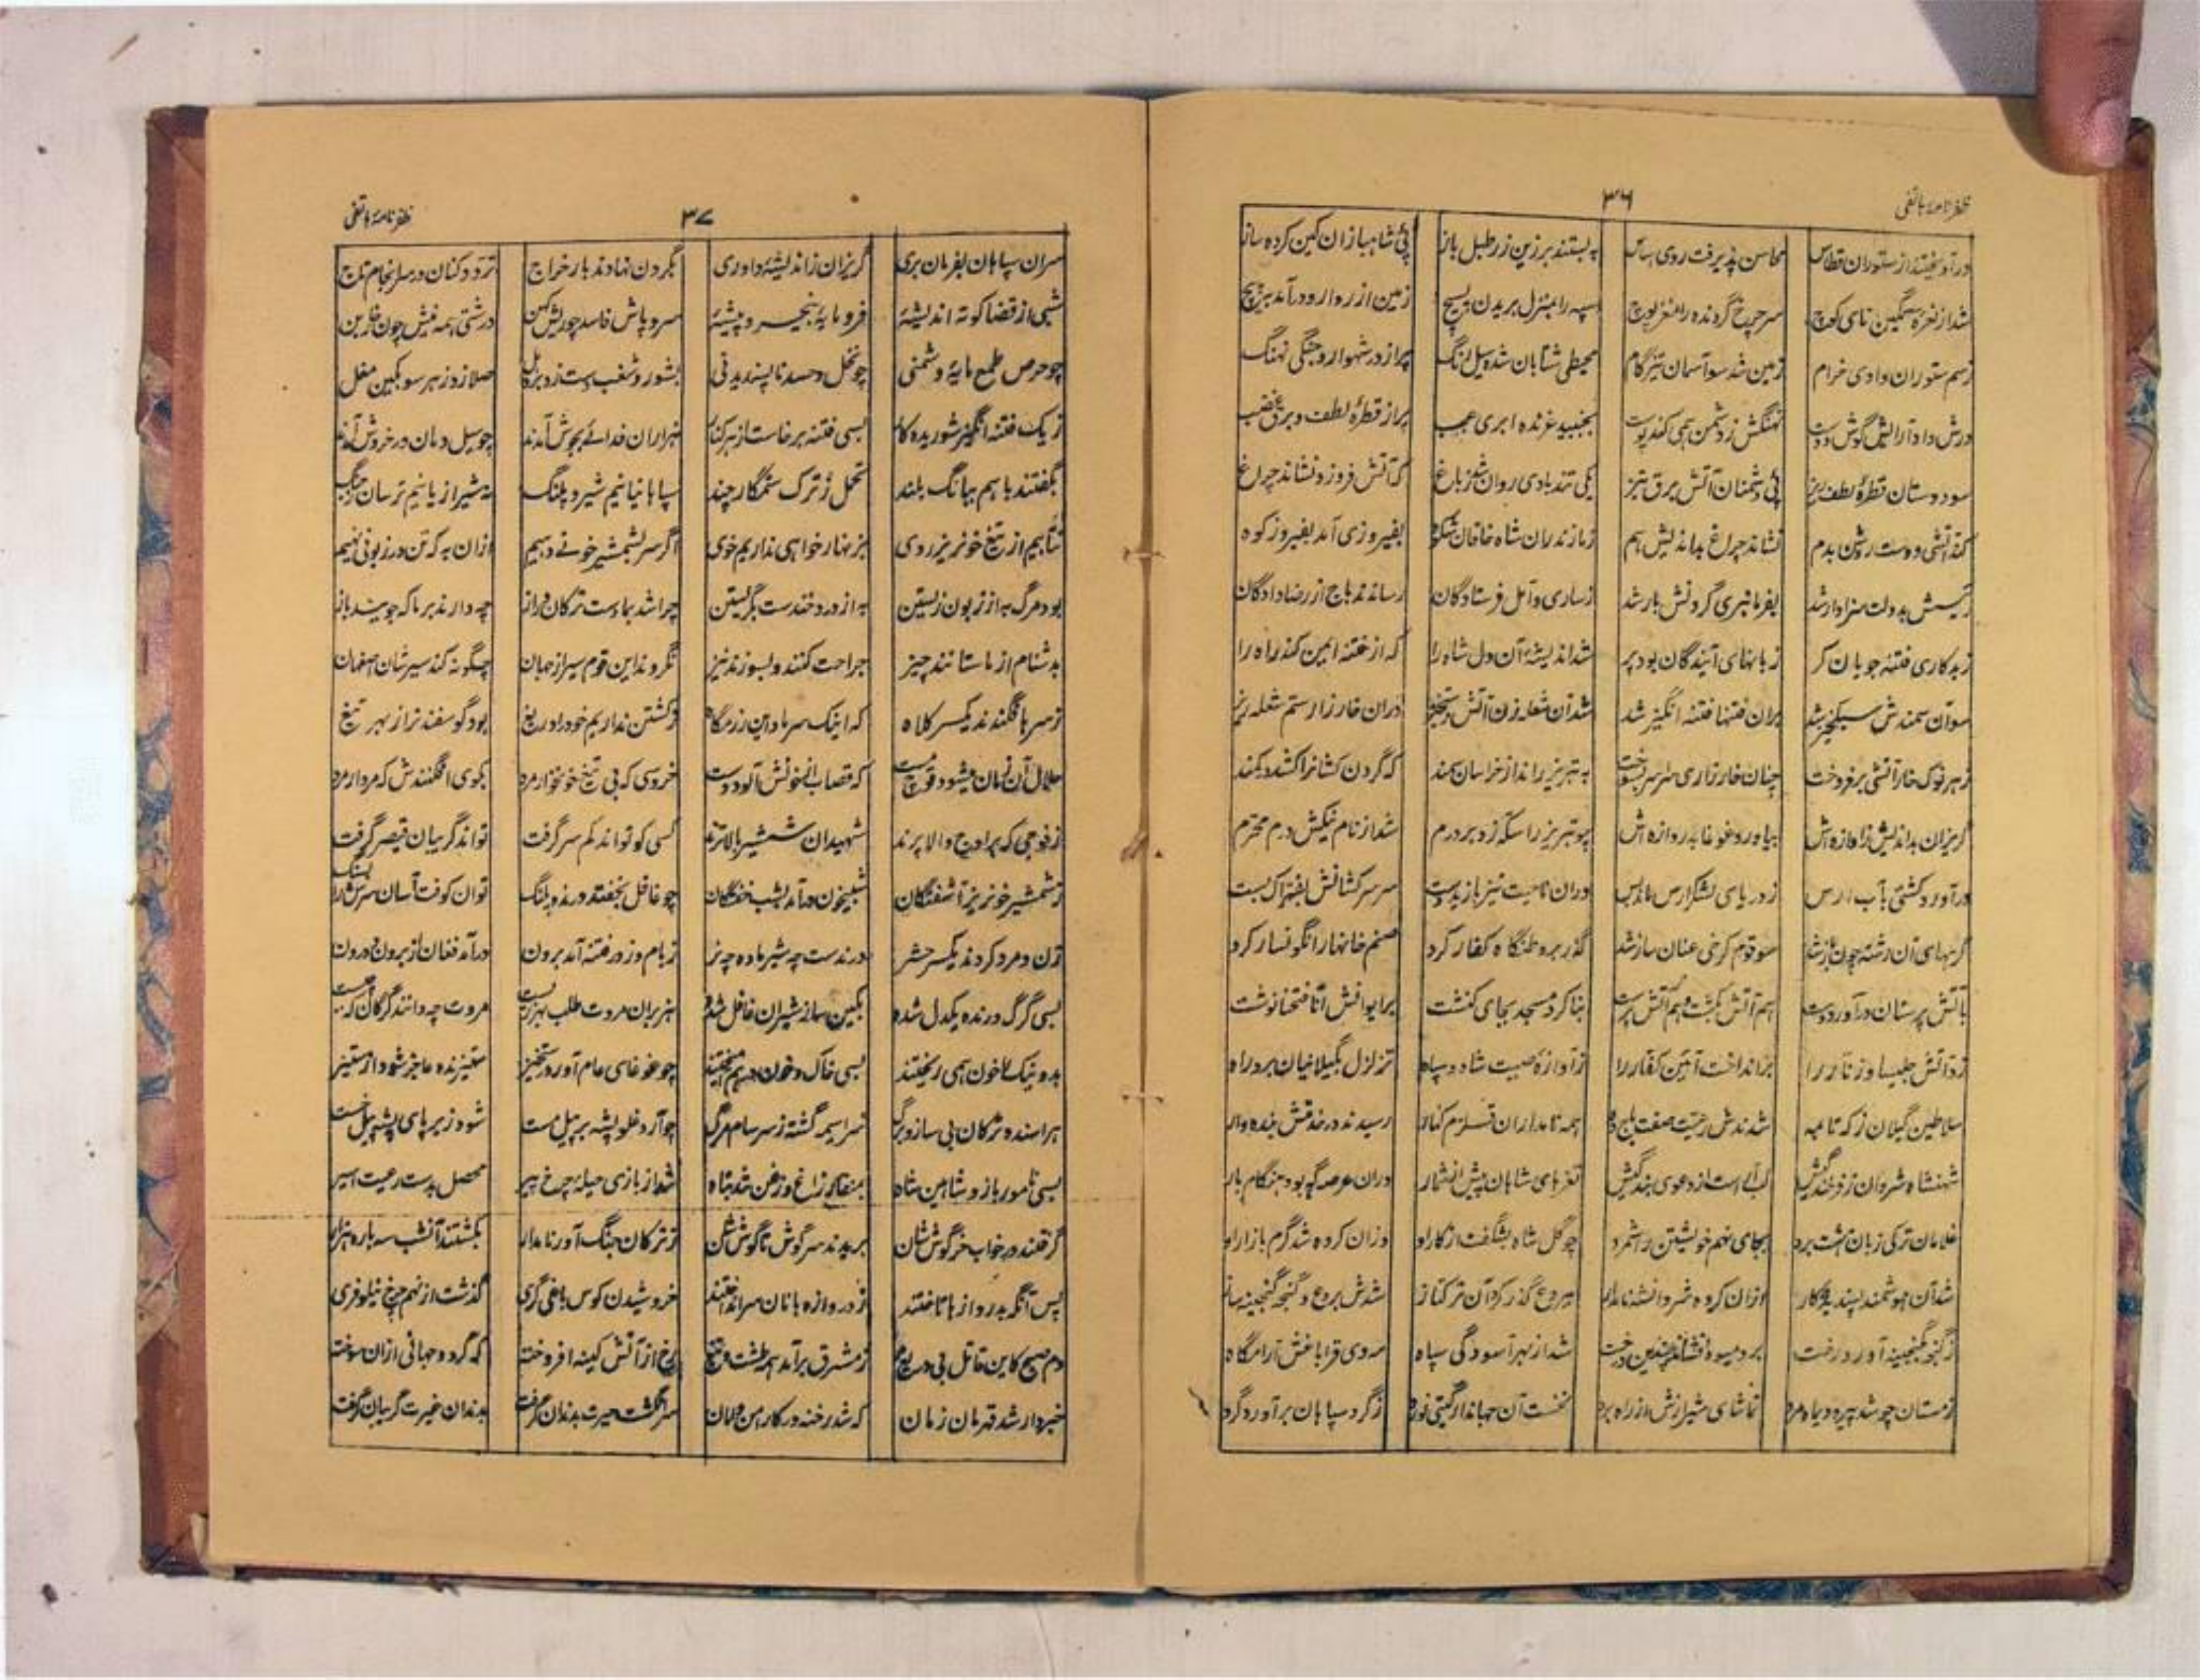 ظفرنامهٔ ہاتفی
۳۶
درآویختند از ستوران قطاس محاسن پذیرفت روی اساس ببستند بر زین زر طبل باز پئ شاهبازان کین کرده ساز
شد از نعره سهمگین نای کوچ سر چرخ گردنده را مغز پوچ سپه را بمنزل بریدن بسیچ زمین از روارو درآمد بپیچ
ز سم ستوران وادی خرام زمین شد سوآسمان تیزگام محیطی شتابان شده سیل رنگ پر از در شهوار و جنگی نهنگ
درش داد آرایش گوش دوست نهنگش ز دشمن همی کند پوست بجنبید غرنده ابری عجب پر از قطرهٔ لطف و برق غضب
سود دوستان قطرهٔ لطف ریز پئ دشمنان آتش برق تیز یکی تند بادی روان شد ز باغ که آتش فروزد نشاند چراغ
کند آتشی دوست روشن بدم نشاند چراغ بداندیش هم ز مازندران شاه خاقان شکوه بفیروزی آمد بفیروزکوه
رئیسش بدولت سزاوار شد بفرمانبری گردنش بار شد ز ساری و آمل فرستادگان رساندند باج از رضا دادگان
ز بدکاری فتنه جویان کر زبانهای آیندگان بود پر شد اندیشهٔ آن دل شاه را که از فتنه ایمن کند راه را
سوآن سمندش سبکخیز شد بران فتنها فتنه انگیز شد شد آن شعله زن آتش رستخیز دران خارزار ستم شعله ریز
ز هر نوک خار آتشی برفروخت چنان خارزاری سراسر بسوخت به تبریز راند از خراسان سمند که گردن کشانرا کشد در کمند
گریزان بداندیش ز آوازه‌اش بیاورد غوغا بدروازه‌اش چو تبریز را سکه زد بر درم شد از نام نیکش درم محترم
درآورد کشتی بآب ارس ز دریای لشکر ارس ماند پس دران ناحیت نیز بازید دست سر سرکشانش بفتراک بست
گرههای آن رشته چون باز شد سو قوم کرخی عنان ساز شد گذر بر وطنگاه کفار کرد صنم خانهارا نگونسار کرد
بآتش پرستان درآورد دست هم آتش بکشت و هم آتش پرست بنا کرد مسجد بجای کنشت بر ایوانش انا فتحنا نوشت
زد آتش چلیپا و زنار را برانداخت آئین کفار را ز آوازهٔ صیت شاه و سپاه تزلزل بگیلانیان برد راه
سلاطین گیلان ز که تا مه شدندش رعیت صفت باج ده همه نامداران قلزم کنار رسیدند در خدمتش بنده وار
شهنشاه شروان ز فرخندگیش لب آراست از دعوی بندگیش تغزهای شاهان پیش از شمار دران عرصه گه بود هنگام بار
غلامان ترکی زبان هشت برد بجای نهم خویشتن را شمرد چو گل شاه بشگفت از کار او وزان کرده شد گرم بازار او
شد آن هوشمند پسندیده کار ازان کرده شروانشه نامدار ببردع گذر کرد آن ترکتاز شدش بردع و گنجه گنجینه ساز
ز گنجه گنجینه آورد رخت بر و میوه افشاند چندین درخت شد از بهر آسودگی سپاه مه دی قراباغش آرامگاه
زمستان چو شد پیره و یاه مرد تماشای شیرازش از راه برد نخست آن جهاندار گیتی نورد ز گرد سپاهان برآورد گرد
ظفرنامهٔ ہاتفی
۳۷
سران سپاهان بفرمان بری گریزان ز اندیشهٔ داوری بگردن نهادند بار خراج تردد کنان در سرانجام باج
شبی از قضا کوته اندیشهٔ فرومایهٔ بنجیر و پیشهٔ سر و پاش فاسد چو ریش کهن درشتی همه نیش چون خار بن
چو حرص طمع مایهٔ دشمنی چو بخل و حسد ناپسندیدنی بشور و شغب دست زد بر دهل صلا زد ز هر سو بکین مغل
ز یک فتنه انگیز شوریده کار بسی فتنه برخاست از هر کنار هزاران فدائے بجوش آمدند چو سیل دمان در خروش آمدند
بگفتند باهم ببانگ بلند تحمل ز ترک ستمگار چند سپاهانیانیم شیر و پلنگ نه شیراز یانیم ترسان ز جنگ
نتابیم از تیغ خونریز روی بزنهار خواهی نداریم خوی اگر سر بشمشیر خونے دهیم ازان به که تن در زبونی نهیم
بود مرگ به از زبون زیستن به از درد خندست بگریستن چرا شد بما دست ترکان دراز چه دارند بر ما که جویند باز
بدشنام از ما ستانند چیز جراحت کنند و بسوزند نیز نگردند این قوم سیر از جهان چگونه کند سیرشان اصفهان
ز سر ها فگندند یکسر کلاه که اینک سر ما و این رزمگاه ز کشتن نداریم خود را دریغ بود گوسفند نر از بهر تیغ
حلال آن زمان میشود قوچ مست که قصاب از خونش آلود دست خروسی که بی تیغ خونخوار مرد بکوی افگنندش که مردار مرد
ز فوجی که بر اوج والا پرند شهیدان شمشیر بالاترند کسی کو تواند کم سر گرفت تواند گریبان قیصر گرفت
ز شمشیر خونریز آشفتگان شبیخون درآمد بشب خفتگان چو غافل بخفتد درنده پلنگ توان کوفت آسان سرش را بسنگ
زن و مرد کردند یکسر حشر درندست چه شیر ماده چه نر ز بام و ز در فتنه آمد برون درآمد فغان از برون و درون
بسی گرگ درنده یکدل شده بکین سازشیران غافل شده هنربران مروت طلب بهر زیست مروت چه دانند گرگان که چیست
بد و نیک را خون همی ریختند بسی خاک و خون درهم آمیختند چو غوغای عام آورد رستخیز ستیزنده عاجز شود از ستیز
هراسنده ترکان بی ساز و برگ سراسیمه گشته ز سرسام مرگ چو آرد غلو پشه بر پیل مست شود زیر پای پشه پیل خست
بسی نامور باز و شاهین شاه بمنقار زاغ و زغن شد تباه شد از بازی حیلهٔ چرخ پیر محصل بدست رعیت اسیر
گرفتند در خواب خرگوش شان بریدند سر گوش تا گوش شان ز ترکان جنگ آور نامدار بکشتند آنشب سه باره هزار
پس آنگه بدرواز ها تاختند ز دروازه بانان سر انداختند خروشیدن کوس یاغی گری گذشت از نهم چرخ نیلوفری
دم صبح کاین قاتل بی دریغ ز مشرق برآمد همه طشت و تیغ رخ از آتش کینه افروخته که گردد جهانی ازان سوخته
خبردار شد قهرمان زمان که شد رخنه در کار امن و امان سر انگشت حیرت بدندان گرفت بدندان غیرت گریبان گرفت